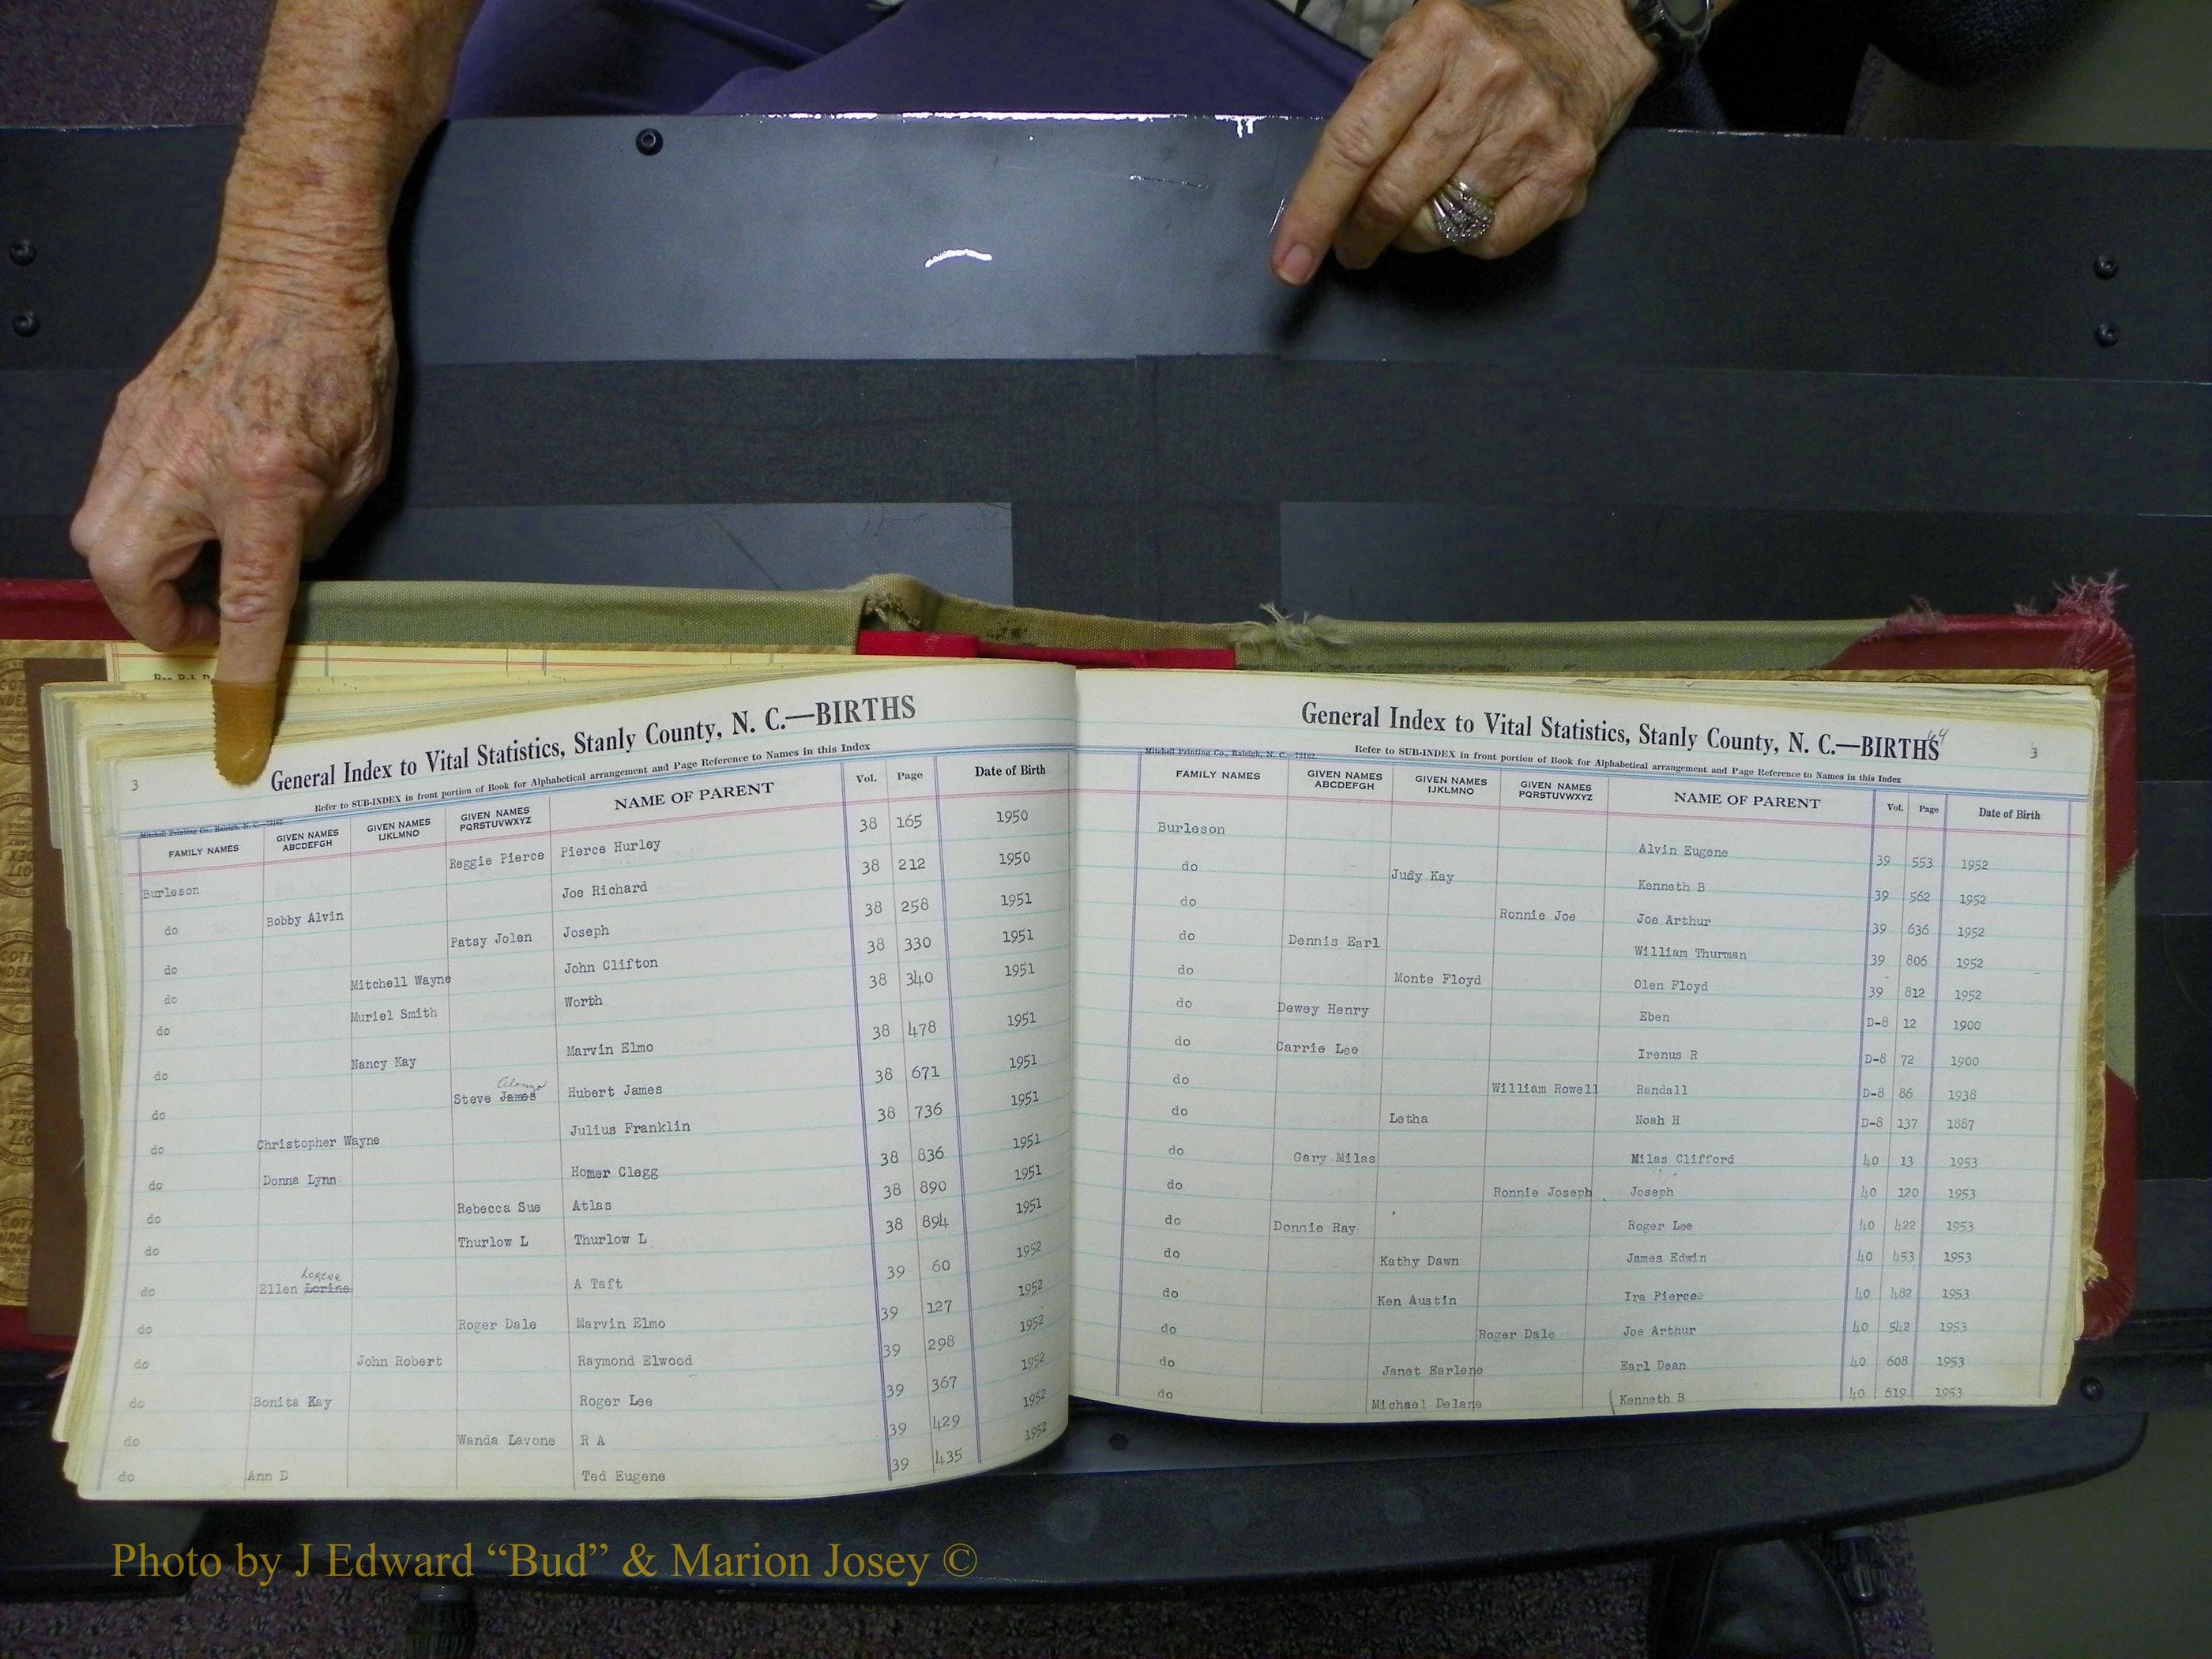 3
General Index to Vital Statistics, Stanly County, N. C.—BIRTHS
Refer to SUB-INDEX in front portion of Book for Alphabetical arrangement and Page Reference to Names in this Index
Mitchell Printing Co., Raleigh, N. C.
FAMILY NAMES GIVEN NAMES ABCDEFGH GIVEN NAMES IJKLMNO GIVEN NAMES PQRSTUVWXYZ NAME OF PARENT Vol. Page Date of Birth
Burleson Reggie Pierce Pierce Hurley 38 165 1950
do Bobby Alvin Joe Richard 38 212 1950
do Patsy Jolen Joseph 38 258 1951
do Mitchell Wayne John Clifton 38 330 1951
do Muriel Smith Worth 38 340 1951
do Nancy Kay Marvin Elmo 38 478 1951
do Steve James Alonzo Hubert James 38 671 1951
do Christopher Wayne Julius Franklin 38 736 1951
do Donna Lynn Homer Clegg 38 836 1951
do Rebecca Sue Atlas 38 890 1951
do Thurlow L Thurlow L 38 894 1951
do Ellen Lorine Lorene A Taft 39 60 1952
do Roger Dale Marvin Elmo 39 127 1952
do John Robert Raymond Elwood 39 298 1952
do Bonita Kay Roger Lee 39 367 1952
do Wanda Lavone R A 39 429 1952
do Ann D Ted Eugene 39 435 1952
General Index to Vital Statistics, Stanly County, N. C.—BIRTHS
64
3
Mitchell Printing Co., Raleigh, N. C. 73162
Refer to SUB-INDEX in front portion of Book for Alphabetical arrangement and Page Reference to Names in this Index
FAMILY NAMES GIVEN NAMES ABCDEFGH GIVEN NAMES IJKLMNO GIVEN NAMES PQRSTUVWXYZ NAME OF PARENT Vol. Page Date of Birth
Burleson Judy Kay Alvin Eugene 39 553 1952
do Ronnie Joe Kenneth B 39 562 1952
do Dennis Earl Joe Arthur 39 636 1952
do Monte Floyd William Thurman 39 806 1952
do Dewey Henry Olen Floyd 39 812 1952
do Carrie Lee Eben D-8 12 1900
do William Rowell Irenus R D-8 72 1900
do Letha Randall D-8 86 1938
do Noah H D-8 137 1887
do Gary Milas Milas Clifford 40 13 1953
do Ronnie Joseph Joseph 40 120 1953
do Donnie Ray Roger Lee 40 422 1953
do Kathy Dawn James Edwin 40 453 1953
do Ken Austin Ira Pierce 40 482 1953
do Roger Dale Joe Arthur 40 542 1953
do Janet Earlene Earl Dean 40 608 1953
do Michael Delane Kenneth B 40 619 1953
Photo by J Edward “Bud” & Marion Josey ©